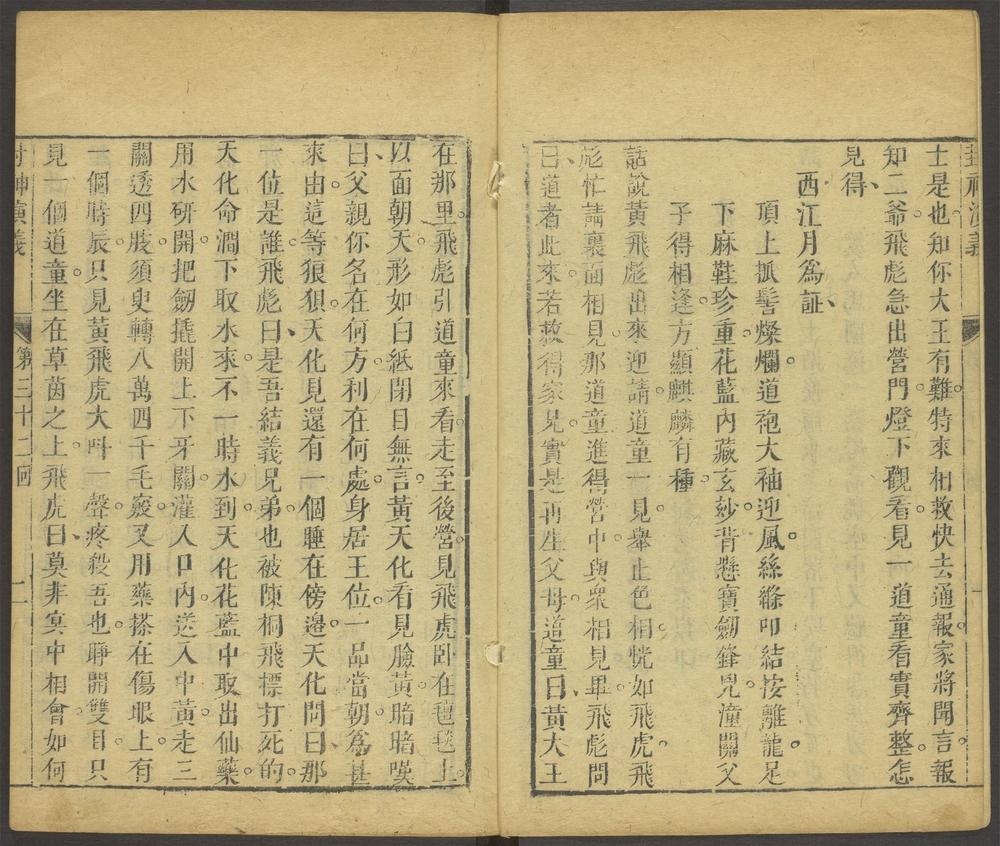 封神演義
士是也知你大王有難特來相救快去通報家將聞言報
知二爺飛彪急出營門燈下觀看見一道童看實齊整怎
見得
西江月為証
頂上抓髻燦爛道袍大袖迎風絲縧叩結按離龍足
下麻鞋珍重花藍內藏玄妙背懸寶劒鋒兇潼關父
子得相逢方顯麒麟有種
話說黃飛彪出來迎請道童一見舉止色相恍如飛虎飛
彪忙請裏面相見那道童進得營中與衆相見畢飛彪問
曰道者此來若救得家兄實是再生父母道童曰黃大王
在那里飛彪引道童來看走至後營見飛虎卧在氊毯上
以面朝天形如白紙閉目無言黃天化看見臉黃暗暗嘆
曰父親你名在何方利在何處身居王位一品當朝為甚
來由這等狼狽天化見還有一個睡在傍邊天化問曰那
一位是誰飛彪曰是吾結義兄弟也被陳桐飛標打死的
天化命澗下取水來不一時水到天化花藍中取出仙藥
用水研開把劒撬開上下牙關灌入口內送入中黃走三
關透四肢須臾轉八萬四千毛竅又用藥搽在傷眼上有
一個時辰只見黃飛虎大呌一聲疼殺吾也睜開雙目只
見一個道童坐在草茵之上飛虎曰莫非冥中相會如何
封神演義
第三十二回
二